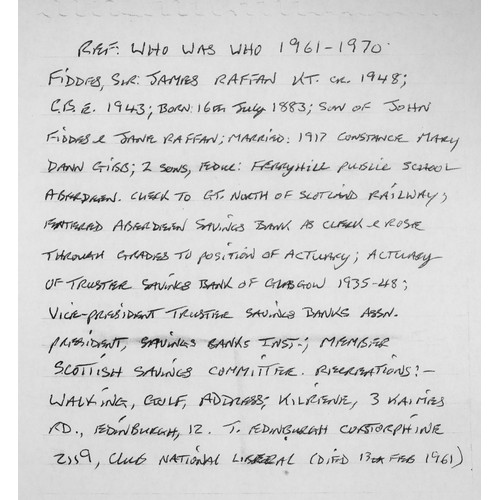 REF: WHO WAS WHO 1961-1970.
FIDDES, SIR: JAMES RAFFAN KT. CR. 1948;
C.B.E. 1943; BORN: 16TH JULY 1883; SON OF JOHN
FIDDES & JANE RAFFAN; MARRIED: 1917 CONSTANCE MARY
DANN GIBB; 2 SONS, EDUC: FERRYHILL PUBLIC SCHOOL
ABERDEEN. CLERK TO GT. NORTH OF SCOTLAND RAILWAY;
ENTERED ABERDEEN SAVINGS BANK AS CLERK & ROSE
THROUGH GRADES TO POSITION OF ACTUARY; ACTUARY
OF TRUSTEE SAVINGS BANK OF GLASGOW 1935-48;
VICE-PRESIDENT TRUSTEE SAVINGS BANKS ASSN.
PRESIDENT, SAVINGS BANKS INST.; MEMBER
SCOTTISH SAVINGS COMMITTEE. RECREATIONS:-
WALKING, GOLF, ADDRESS; 3 KAIMES
RD., EDINBURGH, 12. T. EDINBURGH CORSTORPHINE
2159, CLUB NATIONAL LIBERAL (DIED 13TH FEB 1961)